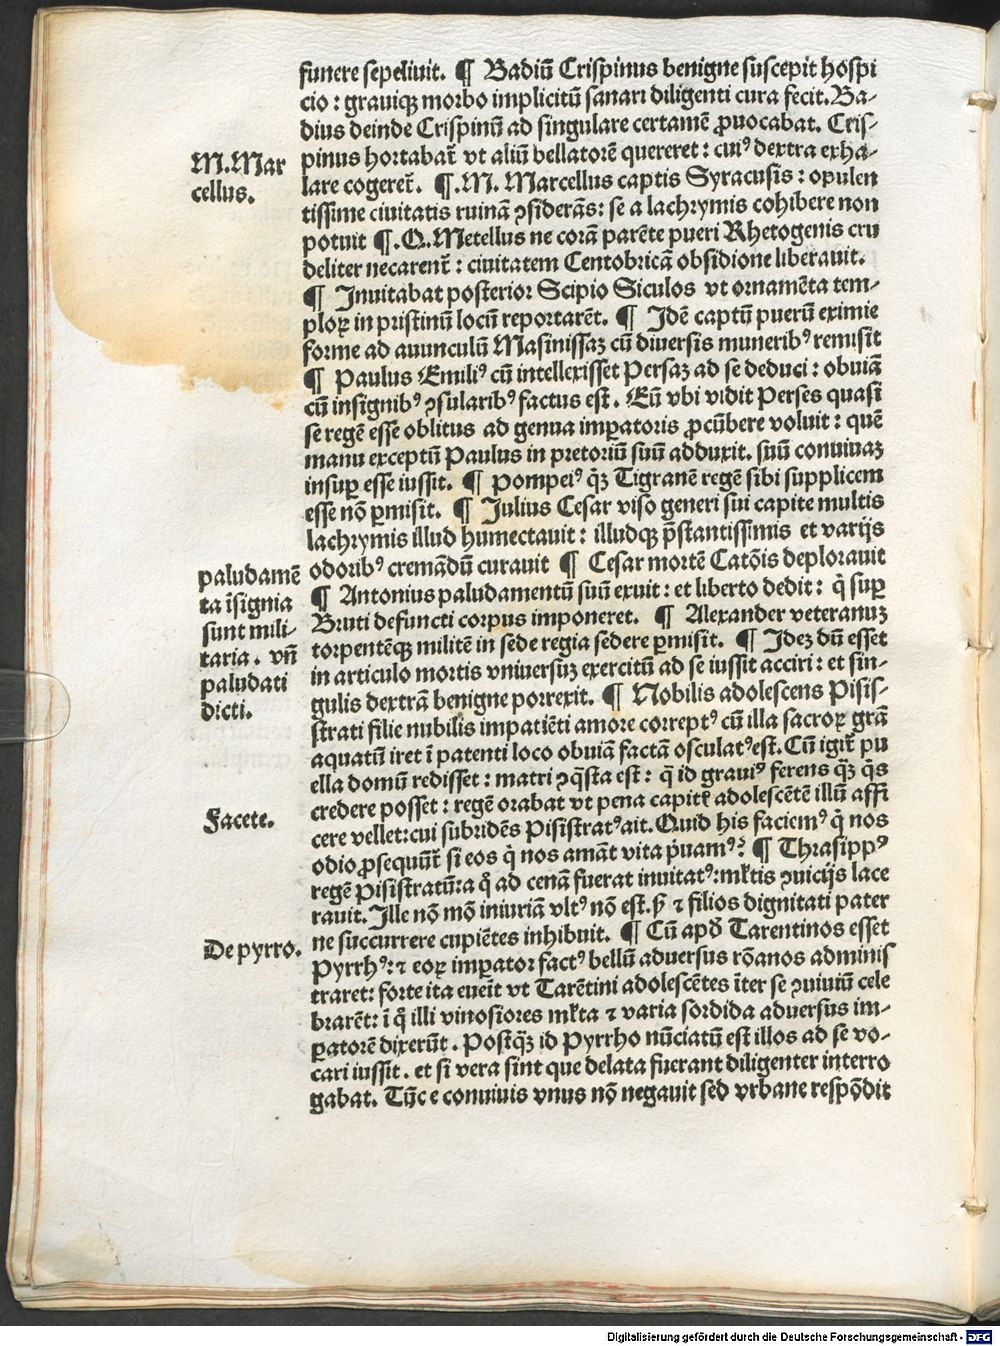 funere sepeliuit. ¶ Badiū Crispinus benigne suscepit hospi
cio : grauiqꝫ morbo implicitū sanari diligenti cura fecit. Ba-
dius deinde Crispinū ad singulare certamē ꝓuocabat. Cris-
pinus hortabat̄ vt aliū bellatorē quereret : cuiꝰ dextra exha-
lare cogeret̄. ¶ .M. Marcellus captis Syracusis : opulen
tissime ciuitatis ruinā ꝯsiderās : se a lachrymis cohibere non
potuit ¶ .Q. Metellus ne corā parēte pueri Rhetogenis cru
deliter necarent̄ : ciuitatem Centobricā obsidione liberauit.
¶ Inuitabat posterior Scipio Siculos vt ornamēta tem-
ploꝝ in pristinū locū reportarēt. ¶ Idē captū puerū eximie
forme ad auunculū Masinissaꝫ cū diuersis muneribꝰ remisit
¶ Paulus Emiliꝰ cū intellexisset Persaꝫ ad se deduci : obuiā
cū insignibꝰ ꝯsularibꝰ factus est. Eū vbi vidit Perses quasi
se regē esse oblitus ad genua imꝑatoris ꝓcūbere voluit : quē
manu exceptū Paulus in pretoriū suū adduxit. suū conuiuaꝫ
insuꝑ esse iussit. ¶ Pompeiꝰ qꝫ̄ Tigranē regē sibi supplicem
esse nō ꝑmisit. ¶ Julius Cesar viso generi sui capite multis
lachrymis illud humectauit : illudqꝫ p̄stantissimis et varijs
odoribꝰ cremādū curauit ¶ Cesar mortē Catōis deplorauit
¶ Antonius paludamentū suū exuit : et liberto dedit : q̇ suꝑ
Bruti defuncti corpus imponeret. ¶ Alexander veteranuꝫ
torpentēqꝫ militē in sede regia sedere ꝑmisit. ¶ Ideꝫ dū esset
in articulo mortis vniuersuꝫ exercitū ad se iussit acciri : et sin-
gulis dextrā benigne porrexit. ¶ Nobilis adolescens Pisis-
strati filie nubilis impatiēti amore correptꝰ cū illa sacroꝝ grā
aquatū iret ī patenti loco obuiā factā osculatꝰ est. Cū igit̄ pu
ella domū redisset : matri ꝯq̄sta est : q̇ id grauiꝰ ferens qꝫ̄ q̇s
credere posset : regē orabat vt pena capit adolescētē illū affi
cere vellet: cui subridēs Pisistratꝰ ait. Quid his faciemꝰ q̇ nos
odio ꝓsequūt̄ si eos q̇ nos amāt vita ṗuamꝰ? ¶ Thrasippꝰ
regē Pisistratū: a q̊ ad cenā fuerat inuitatꝰ: mltis ꝯuicijs lace
rauit. Ille nō mō iniuriā vltꝰ nō est. sꝫ ⁊ filios dignitati pater
ne succurrere cupiētes inhibuit. ¶ Cū apd̄ Tarentinos esset
Pyrrhꝰ : ⁊ eoꝝ imꝑator factꝰ bellū aduersus rōanos adminis
traret: forte ita eueīt vt Tarētini adolescētes īter se ꝯuiuiū cele
brarēt: ī q̊ illi vinosiores mlta ⁊ varia sordida aduersus im-
ꝑatorē dixerūt. Postqꝫ̄ id Pyrrho nūciatū est illos ad se vo-
cari iussit. et si vera sint que delata fuerant diligenter interro
gabat. Tūc e conuiuis vnus nō negauit sed vrbane respōdit
M. Mar
cellus.
paludamē
ta īsignia
sunt mili-
taria. vn̄
paludati
dicti.
Facete.
De pyrro.
Digitalisierung gefördert durch die Deutsche Forschungsgemeinschaft - DFG